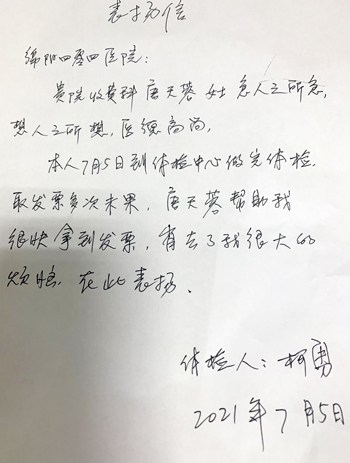 表扬信
绵阳四零四医院：
贵院收费科唐天蓉女士急人之所急，
想人之所想，医德高尚，
本人7月5日到体检中心做完体检，
取发票多次未果，唐天蓉帮助我
很快拿到发票，省去了我很大的
烦恼。在此表扬、
体检人：柯勇
2021年7月5日